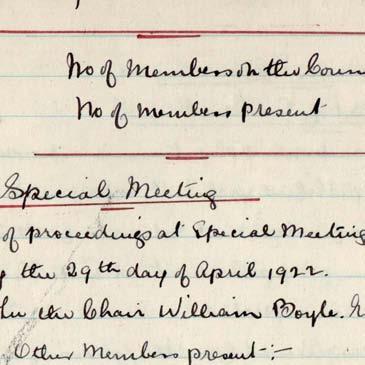 No of Members on the Coun
No of members present
Special Meeting
of proceedings at Special Meeting
the 29th day of April 1922.
the Chair William Boyle.
Other Members present :-